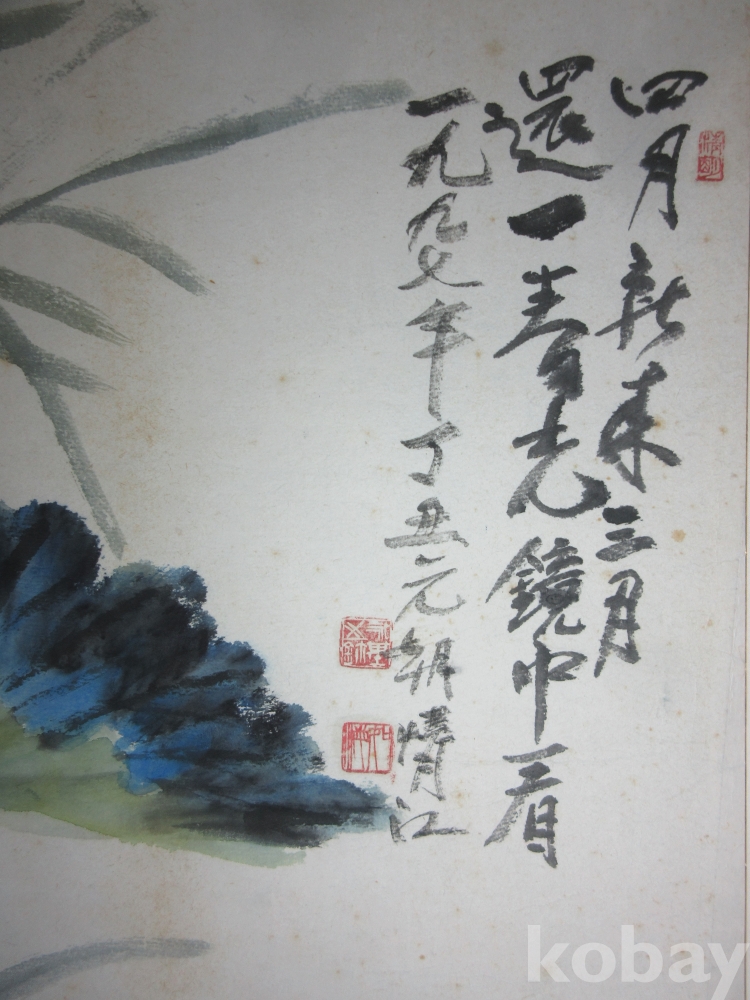 四月新来三月
還一春光鏡中看
一九九七年丁丑元朝情江
kobay